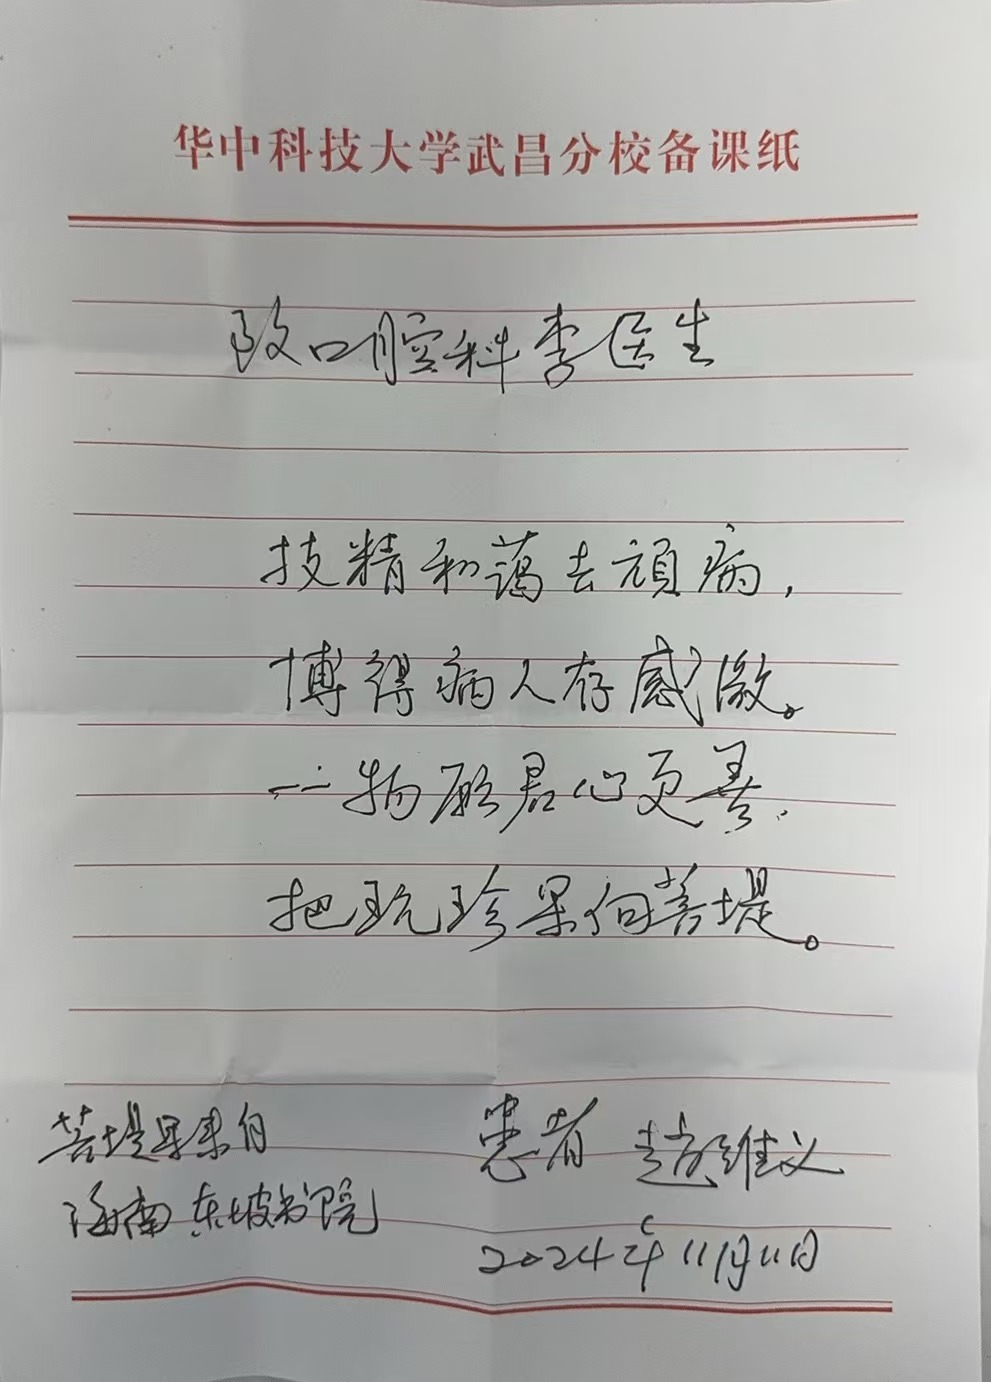 华中科技大学武昌分校备课纸
致口腔科李医生
技精和蔼去頑病，
博得病人存感激。
一物愿君心更善，
把玩珍果向菩堤。
菩堤果来自
海南东坡书院
患者 赵维义
2024年11月11日